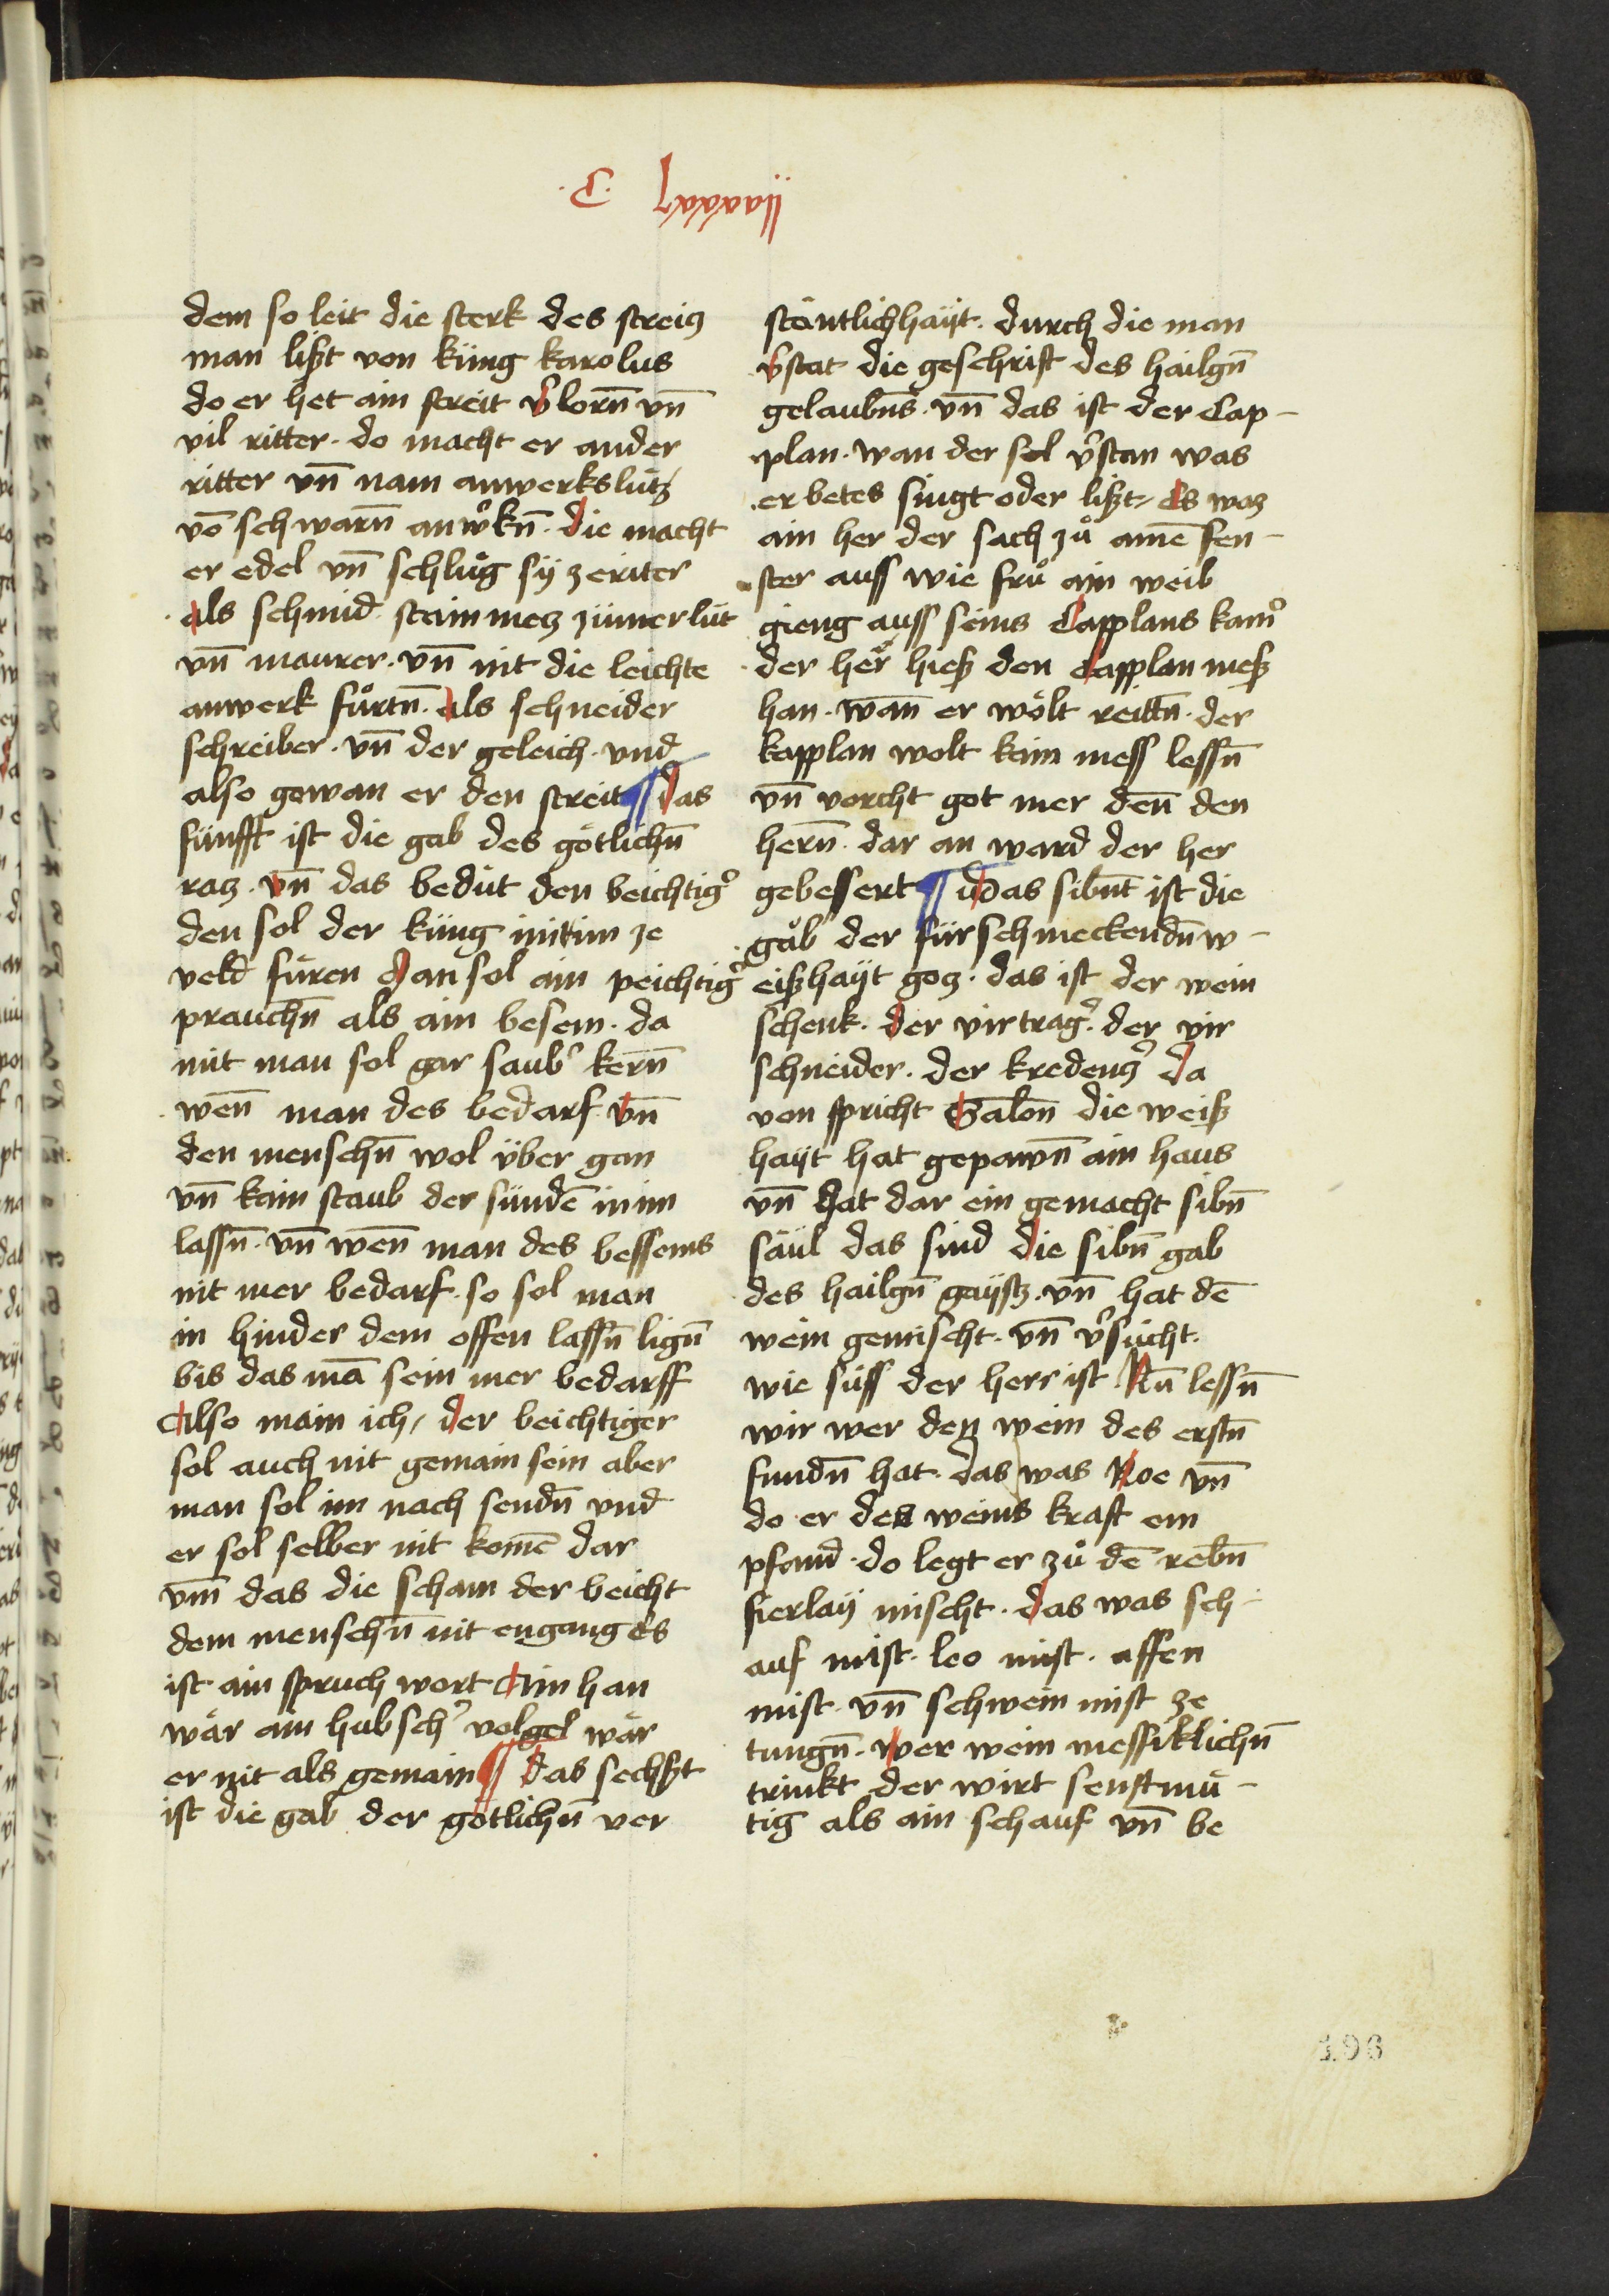 .C. lxxxxvii
dem so leit die sterk des streitz
man lißt von küng karolus
do er het ain streit v̉lorn̄ vn̄
vil ritter · do macht er ander
ritter vn̄ nam anwerkslütz
vō schwarn̄ anw̉kn̄ · die macht
er edel vn̄ schlůg sÿ ze riter
als schmid stainmetz zimerlüt
vn̄ maurer · vn̄ nit die leichte
anwerk fůrtn̄ · als schneider
schreiber · vn̄ der geleich · und
also gewan er den streit ¶ das
fünfft ist die gab des götlichn̄
ratz · vn̄ das bedüt den beichtig̉
den sol der küng mit im ze
veld füren Man sol ain peichtig̉
prauchn̄ als ain besem · da
mit man sol gar saub̉ kern̄
wen̄ man des bedarf vn̄
den menschn̄ wol über gan
vn̄ kain staub der sündē in im
lassn̄ · vn̄ wen̄ man des bessems
nit mer bedarf · so sol man
in hinder dem offen lassn̄ lign̄
bis das mā sein mer bedarff
Also main ich / der beichtiger
sol auch nit gemain sein aber
man sol im nach sendn̄ und
er sol selber nit komē dar
vm̄ das die scham der beicht
dem menschn̄ nit engang Es
ist ain spruch wort Ain han
wär ain hubsch̉ volgel wär
er nit als gemain ¶ das sechßt
ist die gab der götlichn̄ ver
stäntlichhaÿt · durch die man
v̉stat die geschrift des hailgn̄
gelaubn̄s · vn̄ das ist der Cap-
plan · wan der sol v̉stan was
er betes singt oder lißt / Es waz
ain her der sach zů ainē fen-
ster auss wie frů ain weib
gieng auss seins Capplans kam̉
der her̉ hieß den Capplan meß
han · wan̄ er wölt reittn̄ · der
kapplan wolt kain mess lessn̄
vn̄ vorcht got mer den̄ den
hern̄ · dar an ward der her
gebessert ¶ Das sibn̄t ist die
gäb der fürschmeckendn̄ w-
eißhaÿt gotz · das ist der wein
schenk · der virtrag̉ · der vir
schneider · der kredentz̉ da
von spricht Salōn die weiß
haÿt hat gepawn̄ ain haus
vn̄ hat dar ein gemacht sibn̄
säul das sind die sibn̄ gab
des hailgn̄ gaÿstz · vn̄ hat dē
wein gemischt · vn̄ v̉sücht ·
wie süss der herr ist Nū lessn̄
wir wer den wein des erstn̄
fundn̄ hat · das was Noe vn̄
do er des weins kraft em
pfand · do legt er zů dē rebn̄
fierlaÿ mischt · das was sch-
auf mist · leo mist · affen
mist · vn̄ schwein mist ze
tungn̄ · wer wein messiklichn̄
trinkt der wirt senftmü-
tig als ain schauf vn̄ be
196